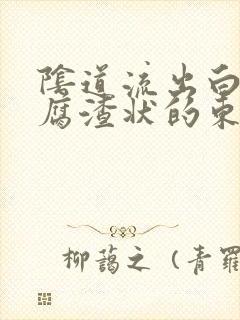 陰道流出白
腐渣状的東
柳藹之 (青羅